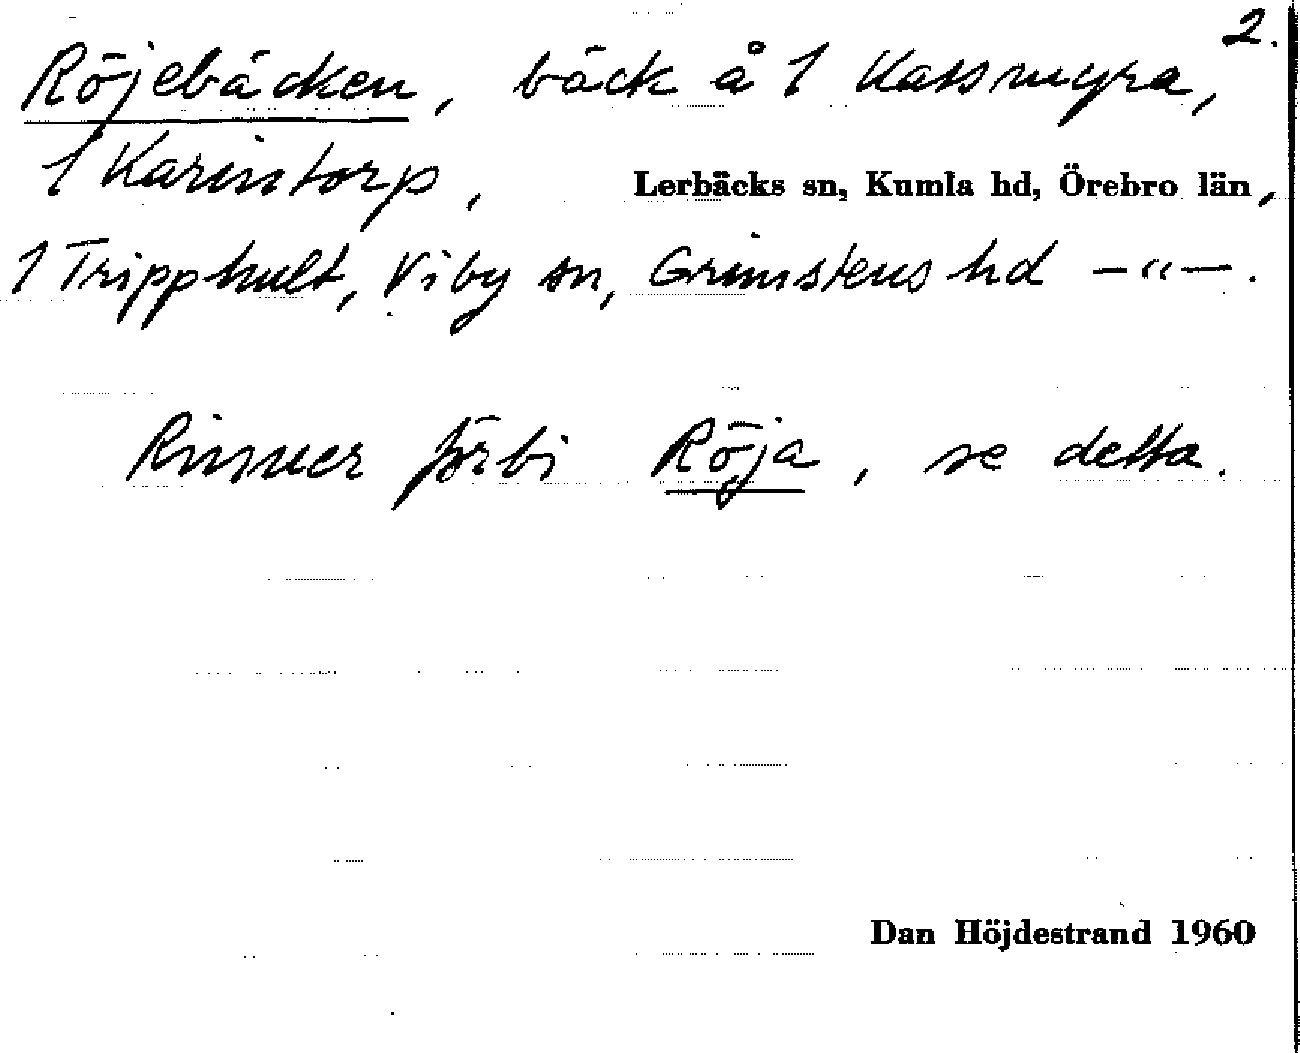 2.
Röjebäcken, bäck å 1 Kassmyra,
1 Karintorp, Lerbäcks sn, Kumla hd, Örebro län,
1 Tripphult, Viby sn, Grimstens hd —"—.
Rinner förbi Röja, se detta.
Dan Höjdestrand 1960